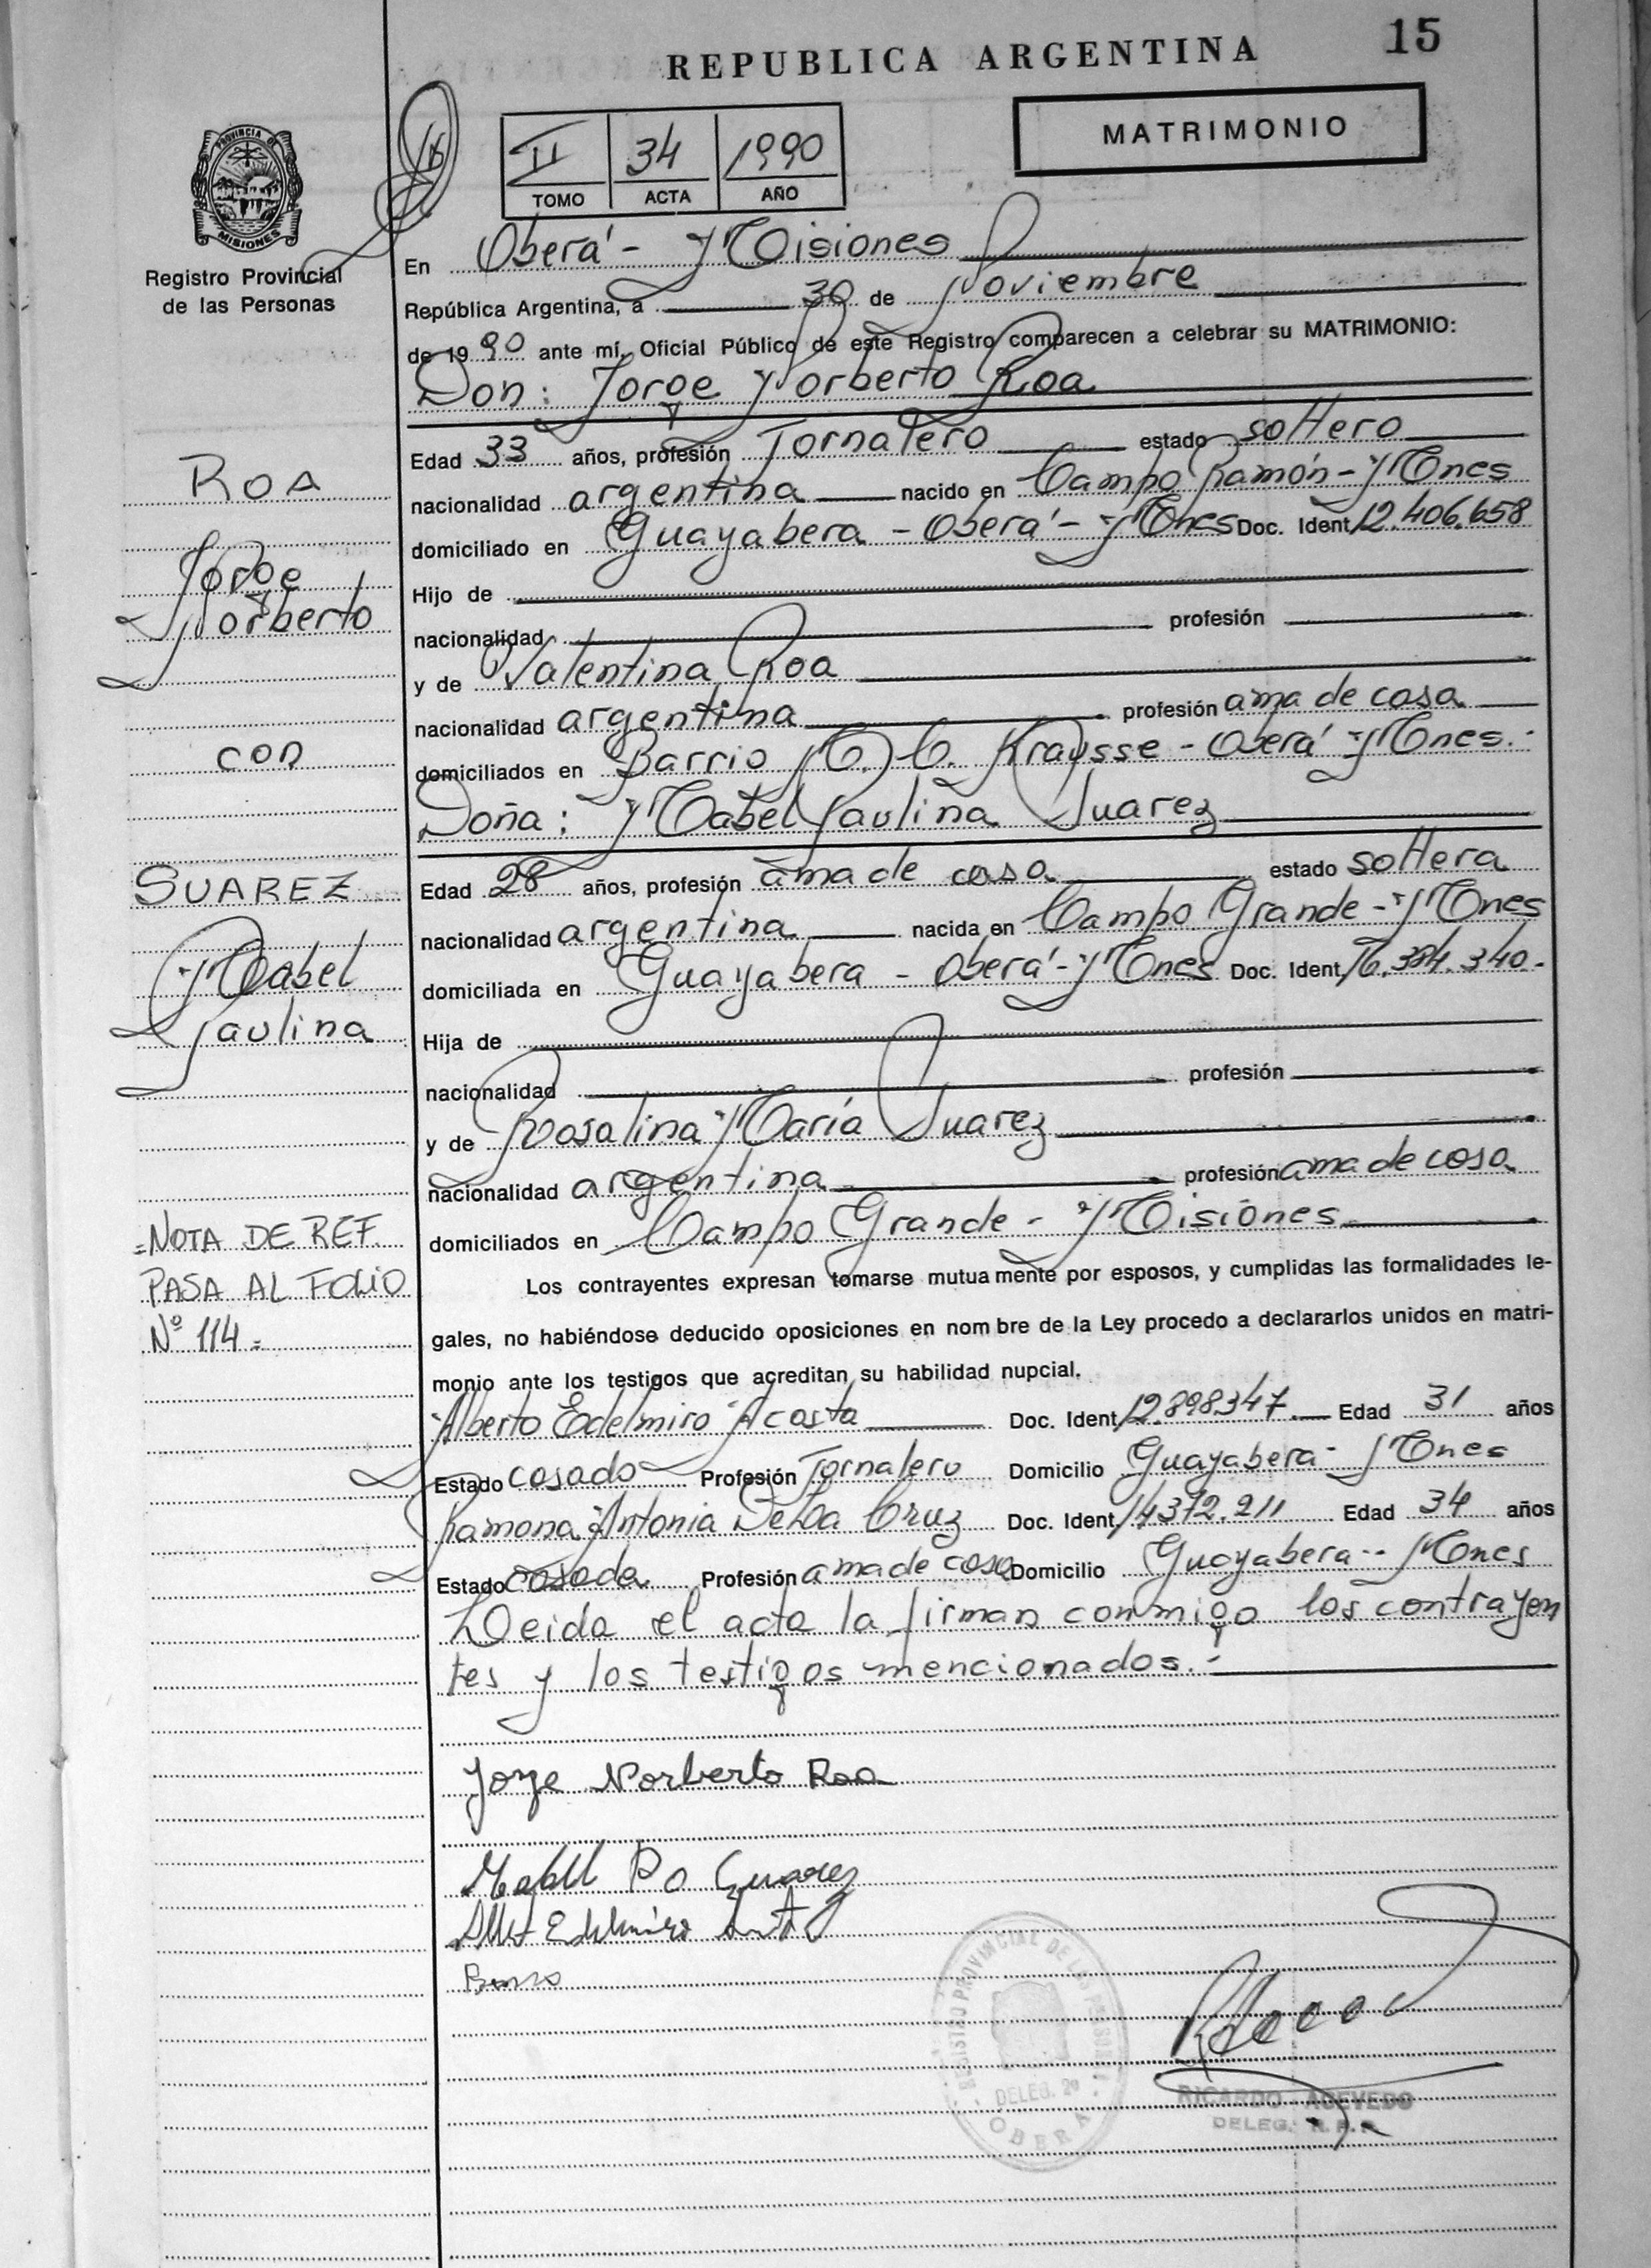 15
REPUBLICA ARGENTINA
MATRIMONIO
II 34 1990
TOMO ACTA AÑO
PROVINCIA DE
MISIONES
Registro Provincial
de las Personas
En Oberá - Misiones
República Argentina, a 30 de Noviembre
de 1990 ante mí, Oficial Público de este Registro comparecen a celebrar su MATRIMONIO:
Don: Jorge Norberto Roa
Edad 33 años, profesión Jornalero estado soltero
nacionalidad argentina nacido en Campo Ramón - Mnes
domiciliado en Guayabera - Oberá - Mnes Doc. Ident. 12.406.658
Hijo de
nacionalidad profesión
y de Valentina Roa
nacionalidad argentina profesión ama de casa
domiciliados en Barrio Kraysse - Oberá Mnes.-
Doña: Mabel Paulina Suarez
Edad 28 años, profesión ama de casa estado soltera
nacionalidad argentina nacida en Campo Grande - Mnes
domiciliada en Guayabera - Oberá - Mnes Doc. Ident.
Hija de
nacionalidad profesión
y de Rosalina María Suarez
nacionalidad argentina profesión ama de casa
domiciliados en Campo Grande - Misiones
Los contrayentes expresan tomarse mutuamente por esposos, y cumplidas las formalidades le-
gales, no habiéndose deducido oposiciones en nombre de la Ley procedo a declararlos unidos en matri-
monio ante los testigos que acreditan su habilidad nupcial.
Alberto Edelmiro Acosta Doc. Ident. 12.898347 Edad 31 años
Estado casado Profesión Jornalero Domicilio Guayabera - Mnes
Ramona Antonia De La Cruz Doc. Ident. 14372.211 Edad 34 años
Estado casada Profesión ama de casa Domicilio Guayabera - Mnes
Leida el acta la firman conmigo los contrayen
tes y los testigos mencionados.-
ROA
Jorge
Norberto
con
SUAREZ
Mabel
Paulina
=NOTA DE REF.
PASA AL FOLIO
Nº 114=
Jorge Norberto Roa
Suarez
Edelmiro
REGISTRO PROVINCIAL DE LAS PERSONAS
DELEG. 2ª
OBERA
RICARDO ACEVEDO
DELEG. R. P. P.